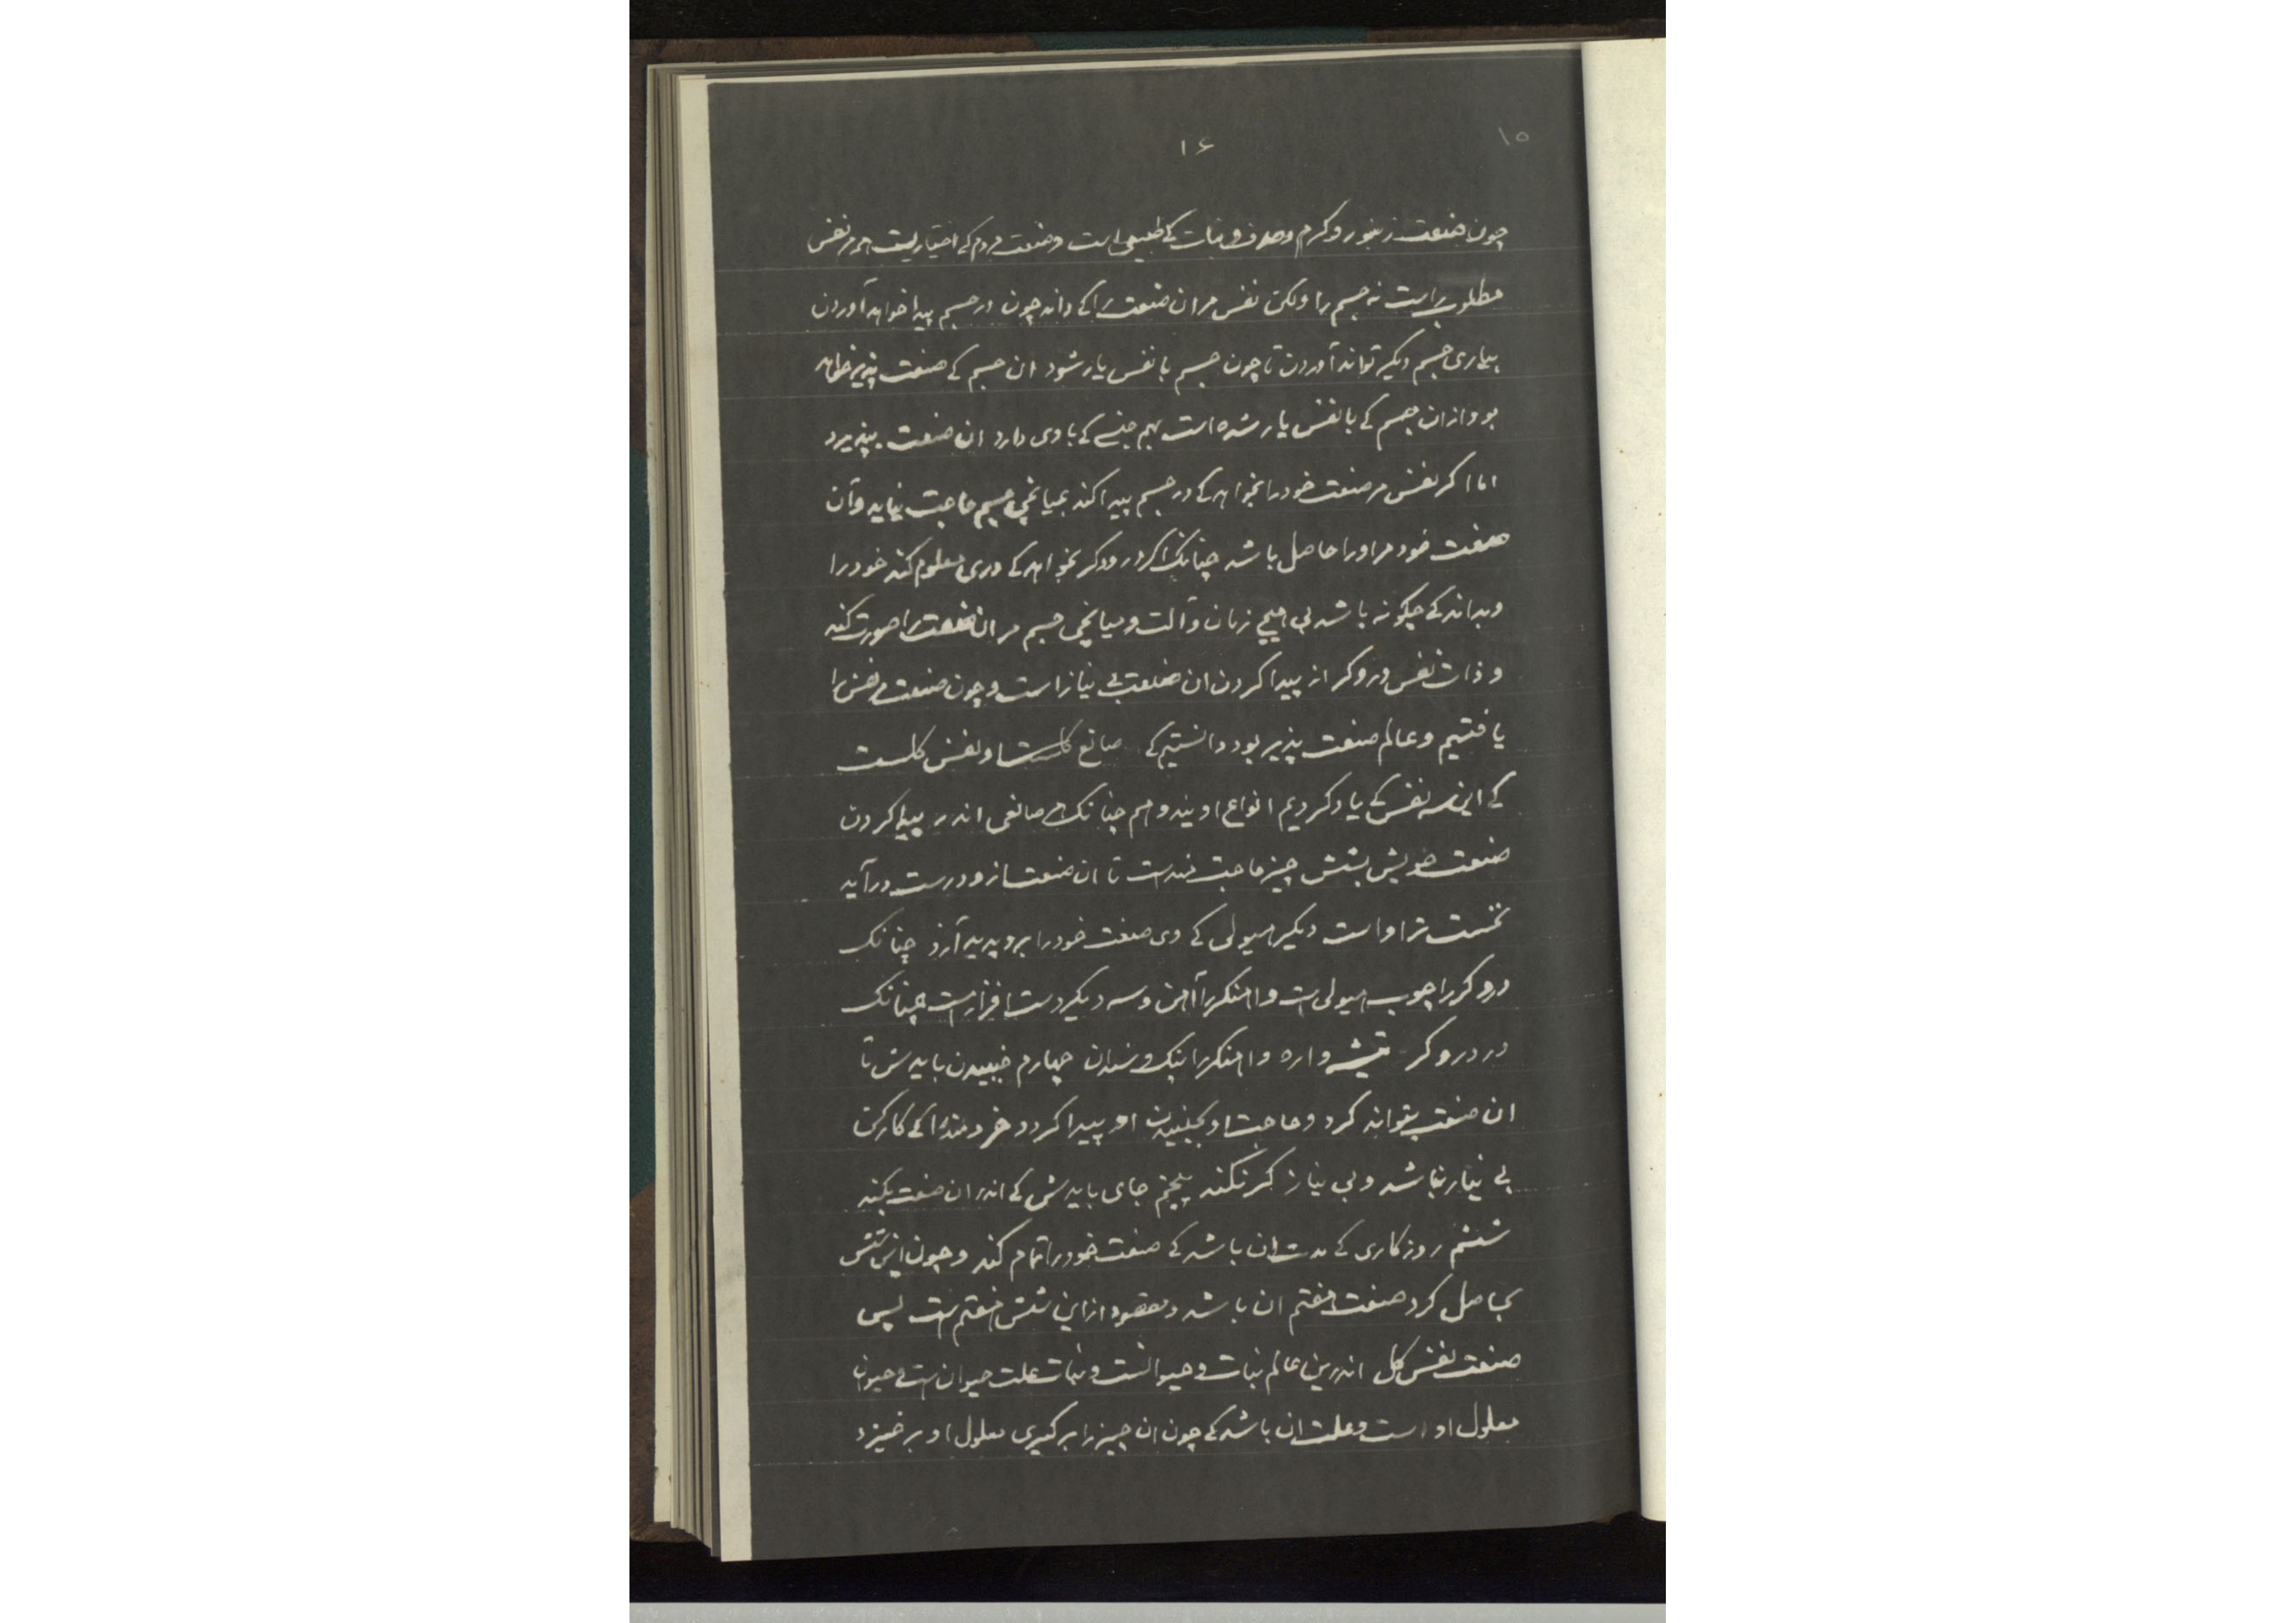 ۱۵
۱۶
چون صنعت زنبور و کرم و صدف و نبات کی طبیعی است و صنعت مردم کی اختیاریست مر نفس
مطلوبراست نه جسم را ولکن نفس مر ان صنعت را کی داند چون در جسم پیدا خواهد آوردن
بیاری جسم دیکر تواند آوردن تا چون جسم با نفس یار شود ان جسم کی صنعت پذیر خواهد
بود از ان جسم کی با نفس یار شده است بهم جنسی کی با وی دارد ان صنعت بپذیرد
اما اکر نفس مر صنعت خود را نخواهد کی در جسم پیدا کند بمیانجی جسم حاجت نیاید و آن
صنعت خود مر او را حاصل باشد چنانک اکر درودکر نخواهد کی دری معلوم کند خود را
و بداند کی چکونه باشد بی هیچ زمان و آلت و میانجی جسم مر ان صنعت را صورت کند
و ذات نفس دروکر از پیدا کردن ان صنعت بی نیاز است و چون صنعت مر نفس را
یافتیم و عالم صنعت پذیر بود دانستیم کی صانع کلست او نفس کلست
کی این سه نفس کی یاد کردیم انواع اویند و هم چنانک هر صانعی اندر پیدا کردن
صنعت خویش بشش چیز حاجت مندست تا ان صنعت ازو درست درآید
نخست مر او است دیکر هیولی کی وی صنعت خود را برو پدید آرد چنانک
دروکر را چوب هیولی است و اهنکر را آهن و سه دیکر دست افزارست چنانک
در دروکر تیشه و اره و اهنکر را پتک و سندان چهارم جنبیدن بایدش تا
ان صنعت بتواند کرد و حاجت او بجنبیدن او پیدا کردد خردمند را کی کارکن
بی نیاز نباشد و بی نیاز کر نکند پنجم جای بایدش کی اندر ان صنعت بکند
ششم روزکاری کی مدت ان باشد کی صنعت خود را تمام کند و چون این شش
بحاصل کرد صنعت هفتم ان باشد و مقصود از این شش هفتم است پس
صنعت نفس کل اندرین عالم نبات و حیوانست و نبات علت حیوان است و حیوان
معلول او است و علت ان باشد کی چون ان چیز را برکیری معلول او برخیزد